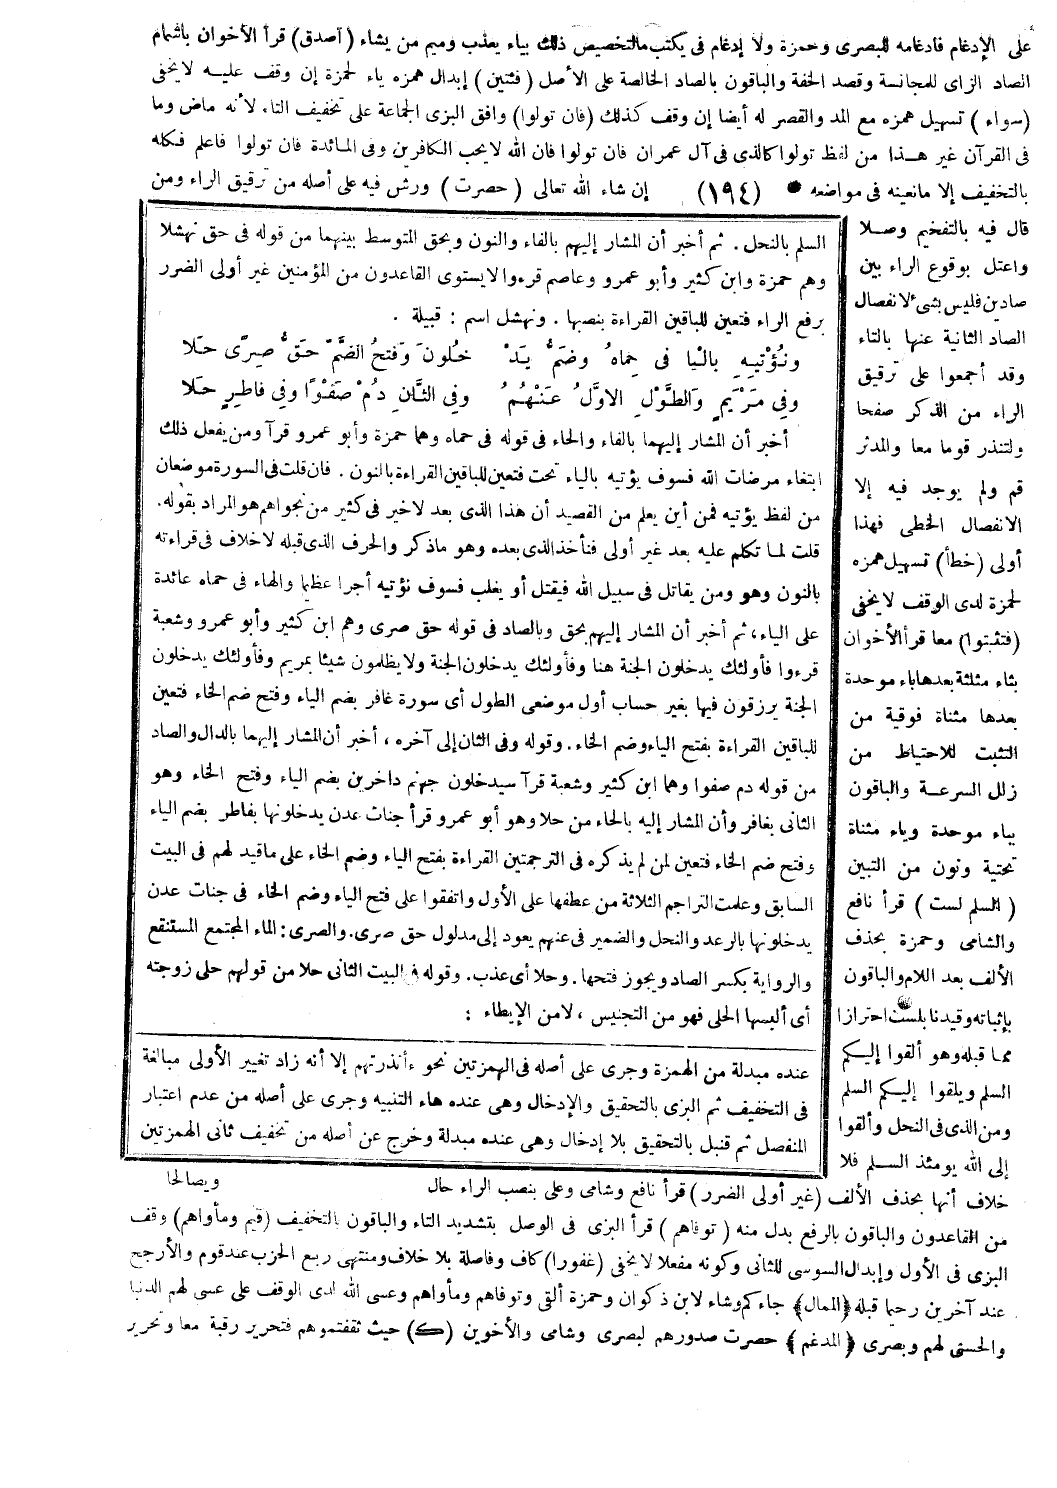 على الإدغام فادغامه للبصرى وحمزة ولا إدغام فى يكتب مالتخصيص ذلك بباء يعذب وميم من يشاء (أصدق) قرأ الأخوان باشمام
الصاد الزاى للمجانسة وقصد الخفة والباقون بالصاد الخالصة على الأصل (فئتين) إبدال همزه ياء لحمزة إن وقف عليه لايخفى
(سواء) تسهيل همزه مع المد والقصر له أيضا إن وقف كذلك (فان تولوا) وافق البزى الجماعة على تخفيف التاء لأنه ماض وما
فى القرآن غير هذا من لفظ تولوا كالذى فى آل عمران فان تولوا فان الله لايحب الكافرين وفى المائدة فان تولوا فاعلم فكله
بالتخفيف إلا مانعينه فى مواضعه (١٩٤) إن شاء الله تعالى (حصرت) ورش فيه على أصله من ترقيق الراء ومن
قال فيه بالتفخيم وصلا
واعتل بوقوع الراء بين
صادين فليس بشىء لانفصال
الصاد الثانية عنها بالتاء
وقد أجمعوا على ترقيق
الراء من الذكر صفحا
ولتنذر قوما معا والمدثر
قم ولم يوجد فيه إلا
الانفصال الخطى فهذا
أولى (خطأ) تسهيل همزه
لحمزة لدى الوقف لايخفى
(فتثبتوا) معا قرأ الأخوان
بثاء مثلثة بعدها باء موحدة
بعدها مثناة فوقية من
التثبت للاحتياط من
زلل السرعة والباقون
بباء موحدة وياء مثناة
تحتية ونون من التبين
(السلم لست) قرأ نافع
والشامى وحمزة بحذف
الألف بعد اللام والباقون
بإثباته وقيدنا بلست احترازا
مما قبله وهو ألقوا إليكم
السلم ويلقوا إليكم السلم
ومن الذى فى النحل وألقوا
إلى الله يومئذ السلم فلا
السلم بالنحل . ثم أخبر أن المشار إليهم بالفاء والنون وبحق المتوسط بينهما من قوله فى حق نهشلا
وهم حمزة وابن كثير وأبو عمرو وعاصم قرءوا لايستوى القاعدون من المؤمنين غير أولى الضرر
برفع الراء فتعين للباقين القراءة بنصبها . ونهشل اسم : قبيلة .
ونُؤْتيهِ باليا فى حِماهُ وضمُّ يَدْ خُلونَ وَفتحُ الضَّمّ حَقُّ صِرًى حَلا
وفِي مَرْيَمٍ وَالطَّوْلِ الاوَّلُ عَنْهُمُ وَفِي الثَّانِ دُمْ صَفْوًا وفِي فاطِرٍ حَلا
أخبر أن المشار إليهما بالفاء والحاء فى قوله فى حماه وهما حمزة وأبو عمرو قرآ ومن يفعل ذلك
ابتغاء مرضات الله فسوف يؤتيه بالياء تحت فتعين للباقين القراءة بالنون . فان قلت فى السورة موضعان
من لفظ يؤتيه فمن أين يعلم من القصيد أن هذا الذى بعد لاخير فى كثير من نجواهم هو المراد بقوله.
قلت لما تكلم عليه بعد غير أولى فنأخذ الذى بعده وهو ماذكر والحرف الذى قبله لاخلاف فى قراءته
بالنون وهو ومن يقاتل فى سبيل الله فيقتل أو يغلب فسوف نؤتيه أجرا عظيما والهاء فى حماه عائدة
على الياء، ثم أخبر أن المشار إليهم بحق وبالصاد فى قوله حق صرى وهم ابن كثير وأبو عمرو وشعبة
قرءوا فأولئك يدخلون الجنة هنا وفأولئك يدخلون الجنة ولايظلمون شيئا بمريم وفأولئك يدخلون
الجنة يرزقون فيها بغير حساب أول موضعى الطول أى سورة غافر بضم الياء وفتح ضم الخاء فتعين
للباقين القراءة بفتح الياء وضم الخاء . وقوله وفى الثان إلى آخره ، أخبر أن المشار إليهما بالدال والصاد
من قوله دم صفوا وهما ابن كثير وشعبة قرآ سيدخلون جهنم داخرين بضم الياء وفتح الخاء وهو
الثانى بغافر وأن المشار إليه بالحاء من حلا وهو أبو عمرو قرأ جنات عدن يدخلونها بفاطر بضم الياء
وفتح ضم الخاء فتعين لمن لم يذكره فى الترجمتين القراءة بفتح الياء وضم الخاء على ماقيد لهم فى البيت
السابق وعلمت التراجم الثلاثة من عطفها على الأول واتفقوا على فتح الياء وضم الخاء فى جنات عدن
يدخلونها بالرعد والنحل والضمير فى عنهم يعود إلى مدلول حق صرى. والصرى : الماء المجتمع المستنقع
والرواية بكسر الصاد ويجوز فتحها . وحلا أى عذب. وقوله فى البيت الثانى حلا من قولهم حلى زوجته
أى ألبسها الحلى فهو من التجنيس ، لامن الإيطاء :
عنده مبدلة من الهمزة وجرى على أصله فى الهمزتين نحو ءأنذرتهم إلا أنه زاد تغيير الأولى مبالغة
فى التخفيف ثم البزى بالتحقيق والإدخال وهى عنده هاء التنبيه وجرى على أصله من عدم اعتبار
المنفصل ثم قنبل بالتحقيق بلا إدخال وهى عنده مبدلة وخرج عن أصله من تخفيف ثانى الهمزتين
خلاف أنها بحذف الألف (غير أولى الضرر) قرأ نافع وشامى وعلى بنصب الراء حال ويصالحا
من القاعدون والباقون بالرفع بدل منه (توفاهم) قرأ البزى فى الوصل بتشديد التاء والباقون بالتخفيف (فيم ومأواهم) وقف
البزى فى الأول وإبدال السوسى للثانى وكونه مفعلا لايخفى (غفورا) كاف وفاصلة بلا خلاف ومنتهى ربع الحزب عند قوم والأرجح
عند آخرين رحيما قبله ﴿الممال﴾ جاءكم وشاء لابن ذكوان وحمزة ألقى وتوفاهم ومأواهم وعسى الله لدى الوقف على عسى لهم الدنيا
والحسنى لهم وبصرى ﴿المدغم﴾ حصرت صدورهم لبصرى وشامى والأخوين (ك) حيث ثقفتموهم فتحرير رقبة معا وتحرير